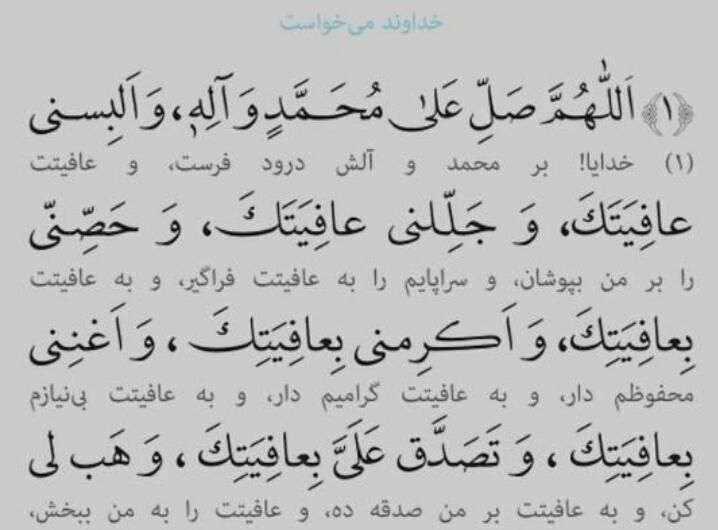 خداوند می‌خواست
﴿۱﴾ اَللّٰهُمَّ صَلِّ عَلىٰ مُحَمَّدٍ وَ آلِهِ، وَ اَلبِسنى
(۱) خدایا! بر محمد و آلش درود فرست، و عافیتت
عافِيَتَكَ، وَ جَلِّلنى عافِيَتَكَ، وَ حَصِّنّى
را بر من بپوشان، و سراپایم را به عافیتت فراگیر، و به عافیتت
بِعافِيَتِكَ، وَ اَكرِمنى بِعافِيَتِكَ ، وَ اَغنِنى
محفوظم دار، و به عافیتت گرامیم دار، و به عافیتت بی‌نیازم
بِعافِيَتِكَ ، وَ تَصَدَّق عَلَىَّ بِعافِيَتِكَ ، وَ هَب لى
کن، و به عافیتت بر من صدقه ده، و عافیتت را به من ببخش،